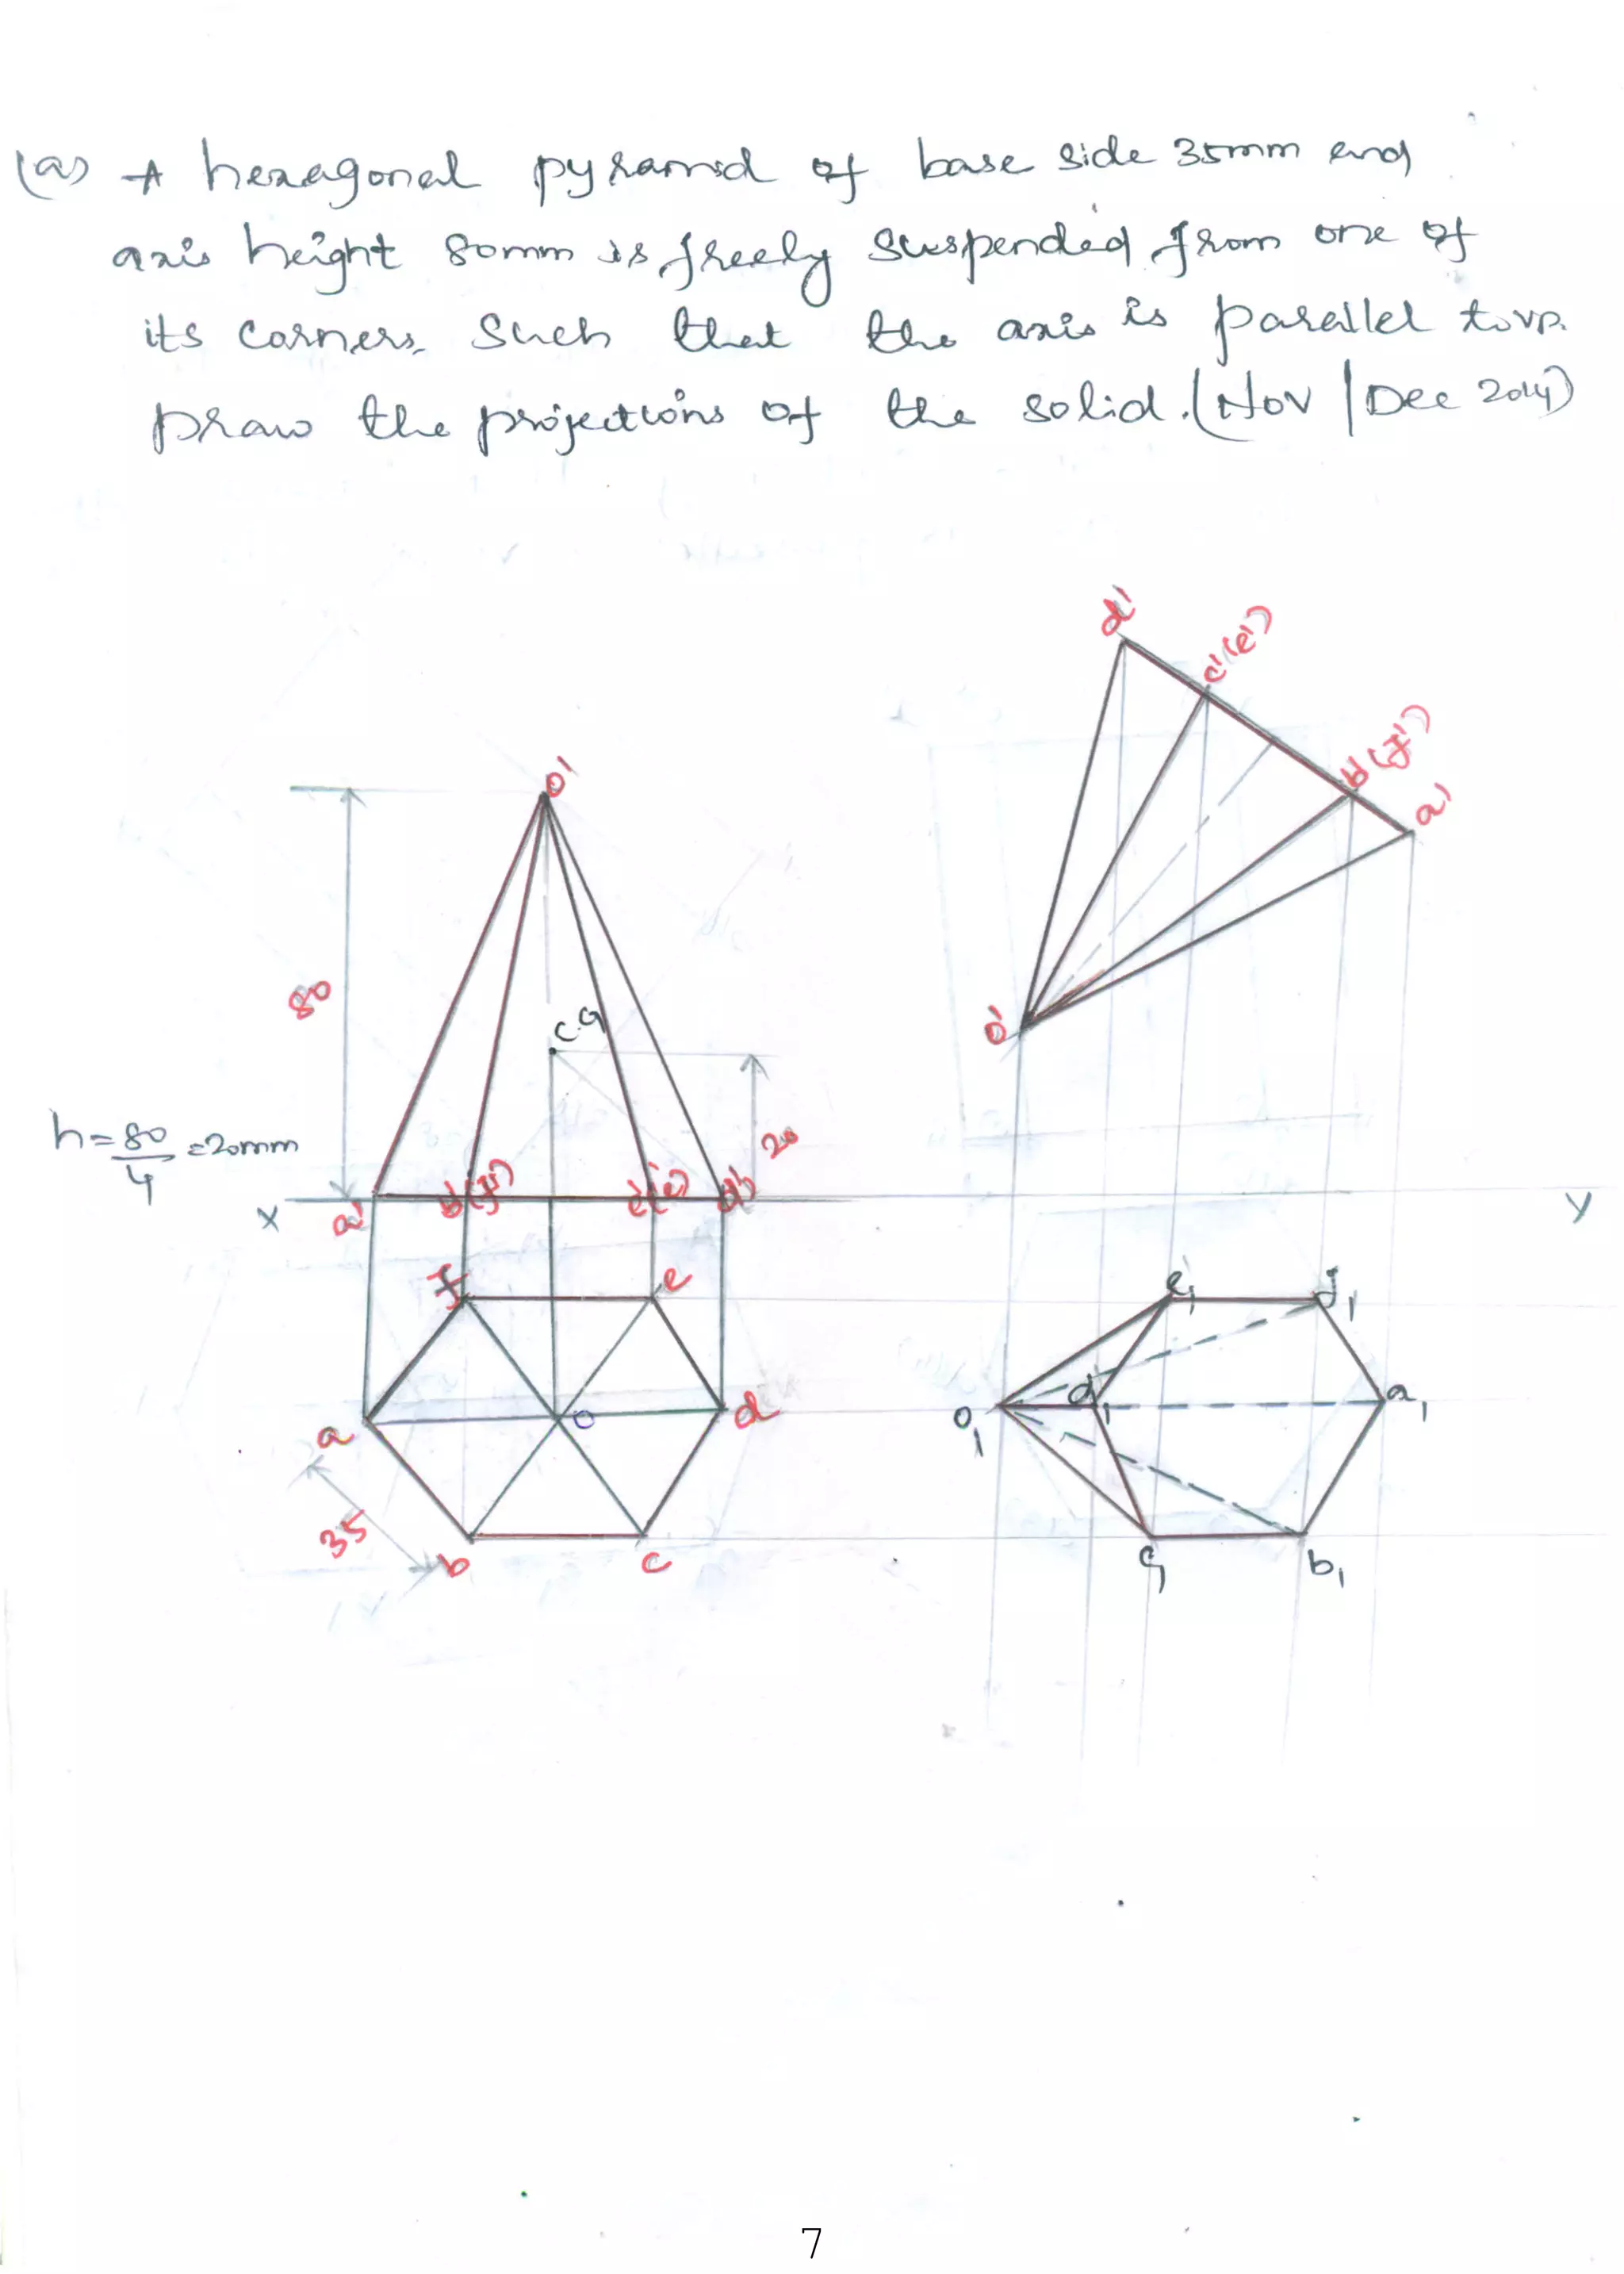 (a) A hexagonal pyramid of base side 35mm and
axis height 80mm is freely suspended from one of
its corners. Such that the axis is parallel to vp.
Draw the projections of the solid. (Nov / Dec 2014)
d'
c'(e')
b'(f')
a'
o'
o'
80
C.G
h = 80/4 = 20mm
20
X
a'
b'(f')
c'(e')
d'
Y
f
e
a
o
d
35
b
c
e1
f1
o1
d1
a1
c1
b1
7